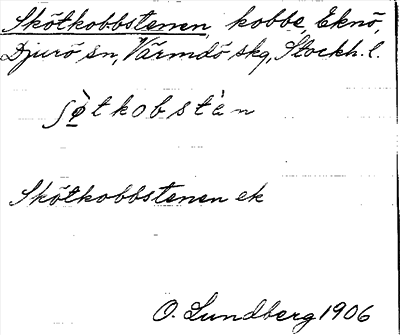 Skötkobbstenen, kobbe, Eknö,
Djurö sn, Värmdö skg, Stockh. l.
ʃø̀tkobstèn
Skötkobbstenen ek
O. Lundberg 1906